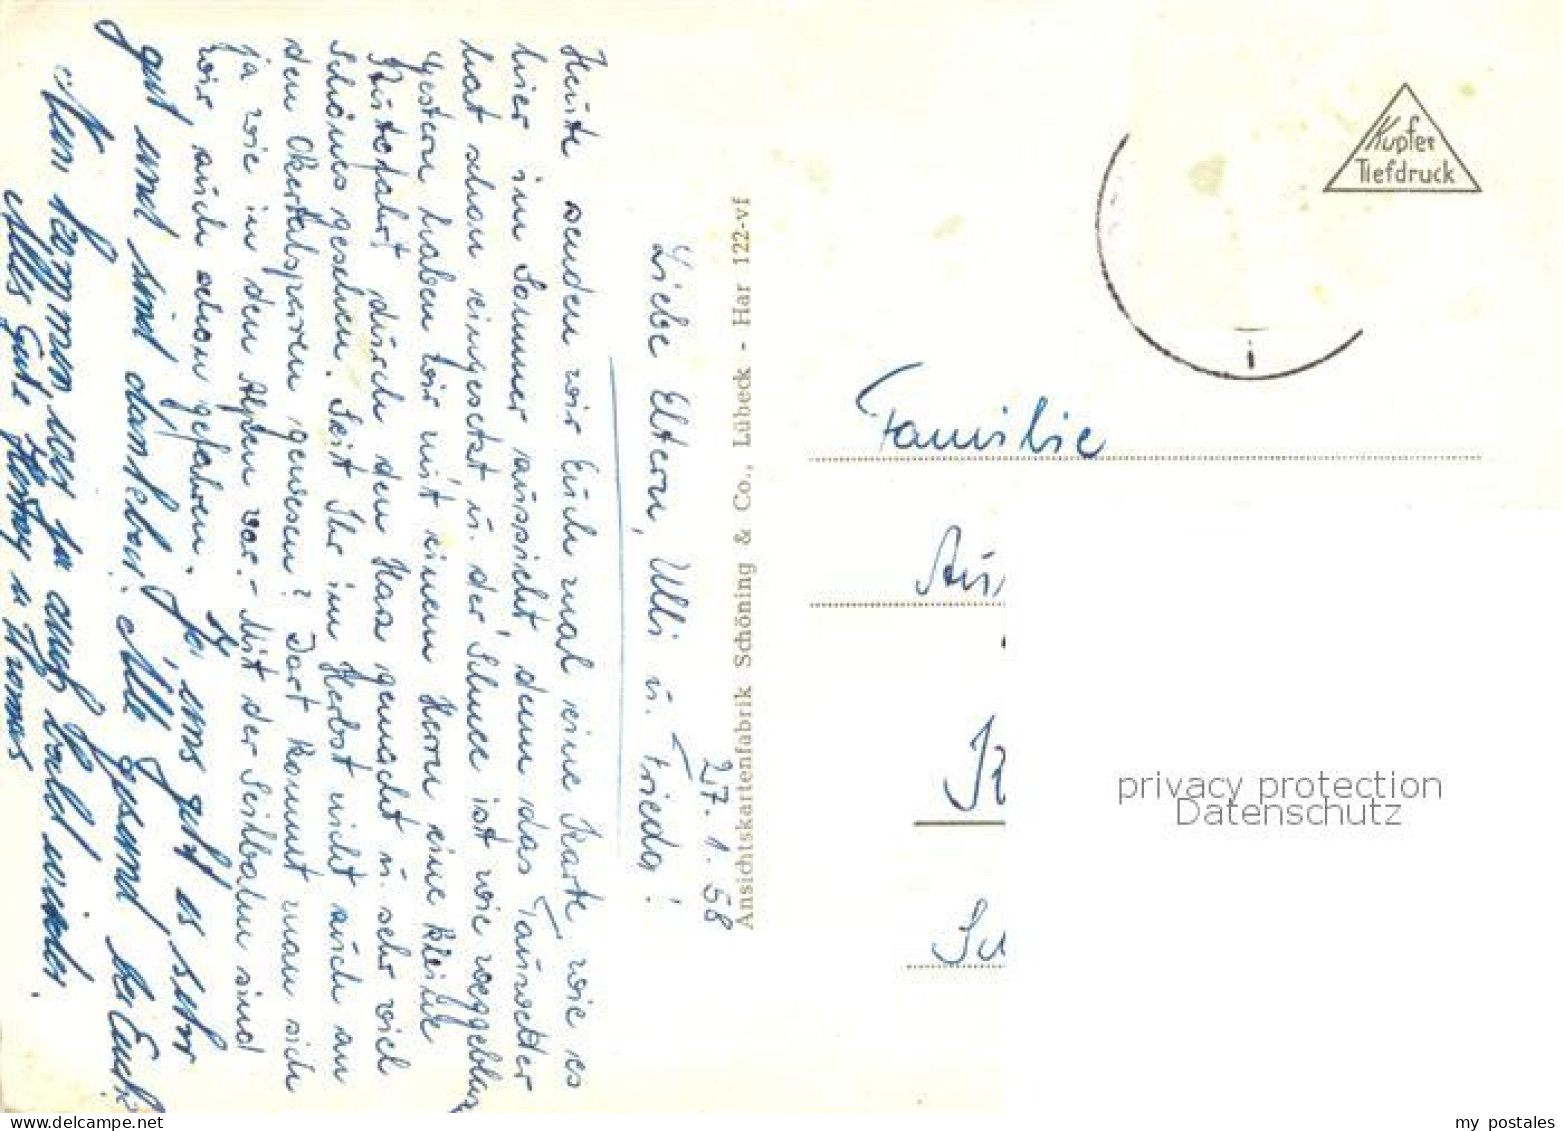 27.1.58
Liebe Eltern, Ulli u. Frieda!
Heute senden wir Euch mal eine Karte wie es
hier im Sommer aussieht, denn das Tauwetter
hat schon eingesetzt u. der Schnee ist wie weggeblasen
Gestern haben wir mit einem Herrn eine kleine
durch den Harz gemacht u. sehr viel
Schönes gesehen. Seit Ihr im Herbst nicht auch an
den Okertalsperren gewesen? Dort kommt man sich
ja wie in den Alpen vor. – Mit der Seilbahn sind
wir auch schon gefahren.
Ja, uns geht es sehr
gut und sind dankbar! Alle gesund bei Euch?
Nun kommen wir ja auch bald wieder.
Alles Gute, u.
Ansichtskartenfabrik Schöning & Co., Lübeck - Har 122-vf
Kupfer
Tiefdruck
Familie
privacy protection
Datenschutz
my postales